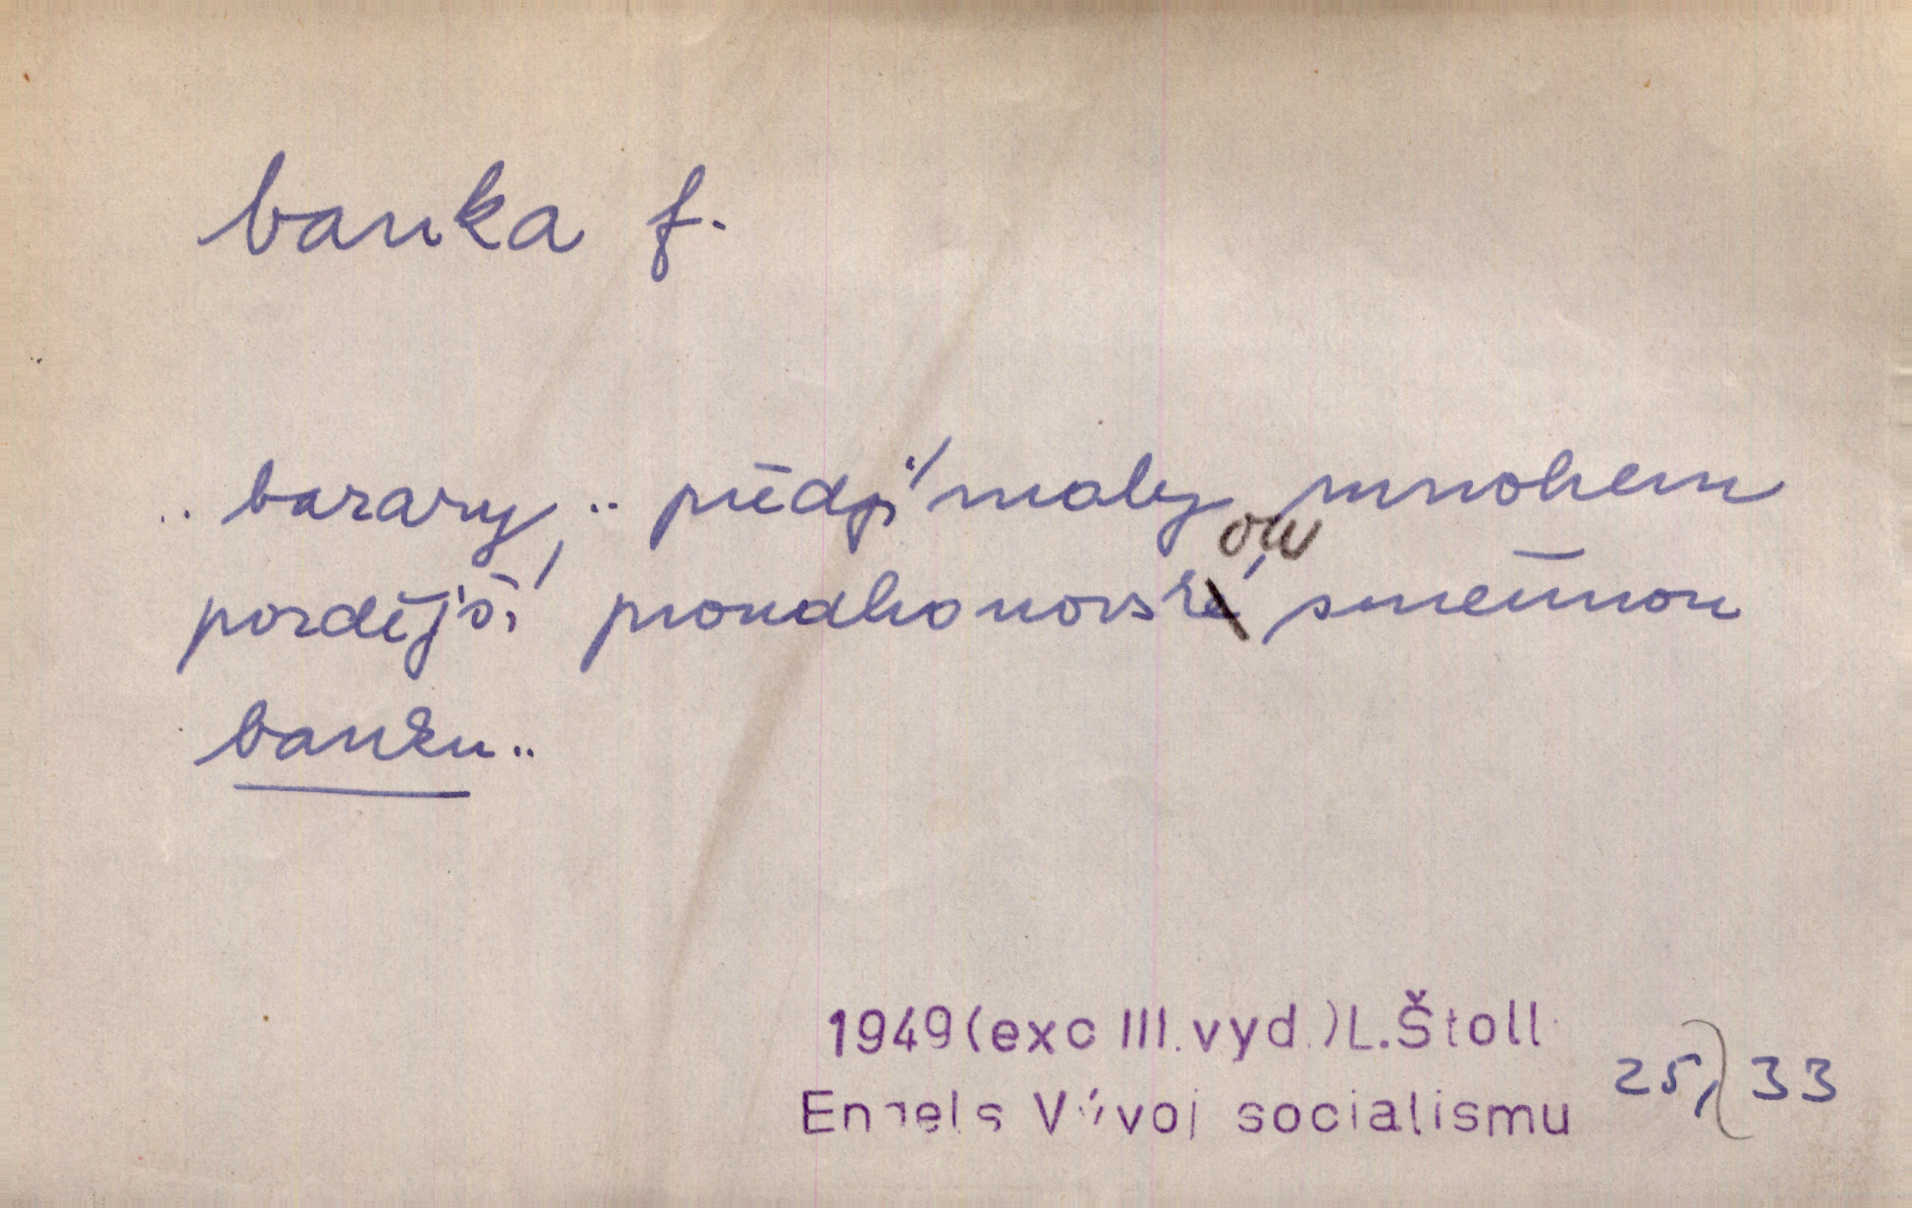 banka f.
.. bazary, .. předjímaly mnohem
ou
pozdější proudhonovské směnnou
banku ..
1949 (exc III. vyd.) L. Štoll
Engels Vývoj socialismu 25, 33